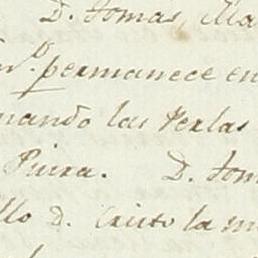 D. Tomas, Ma
permanece en
mando las Perlas
Piura. D. Tom
llo D. Cristo la m